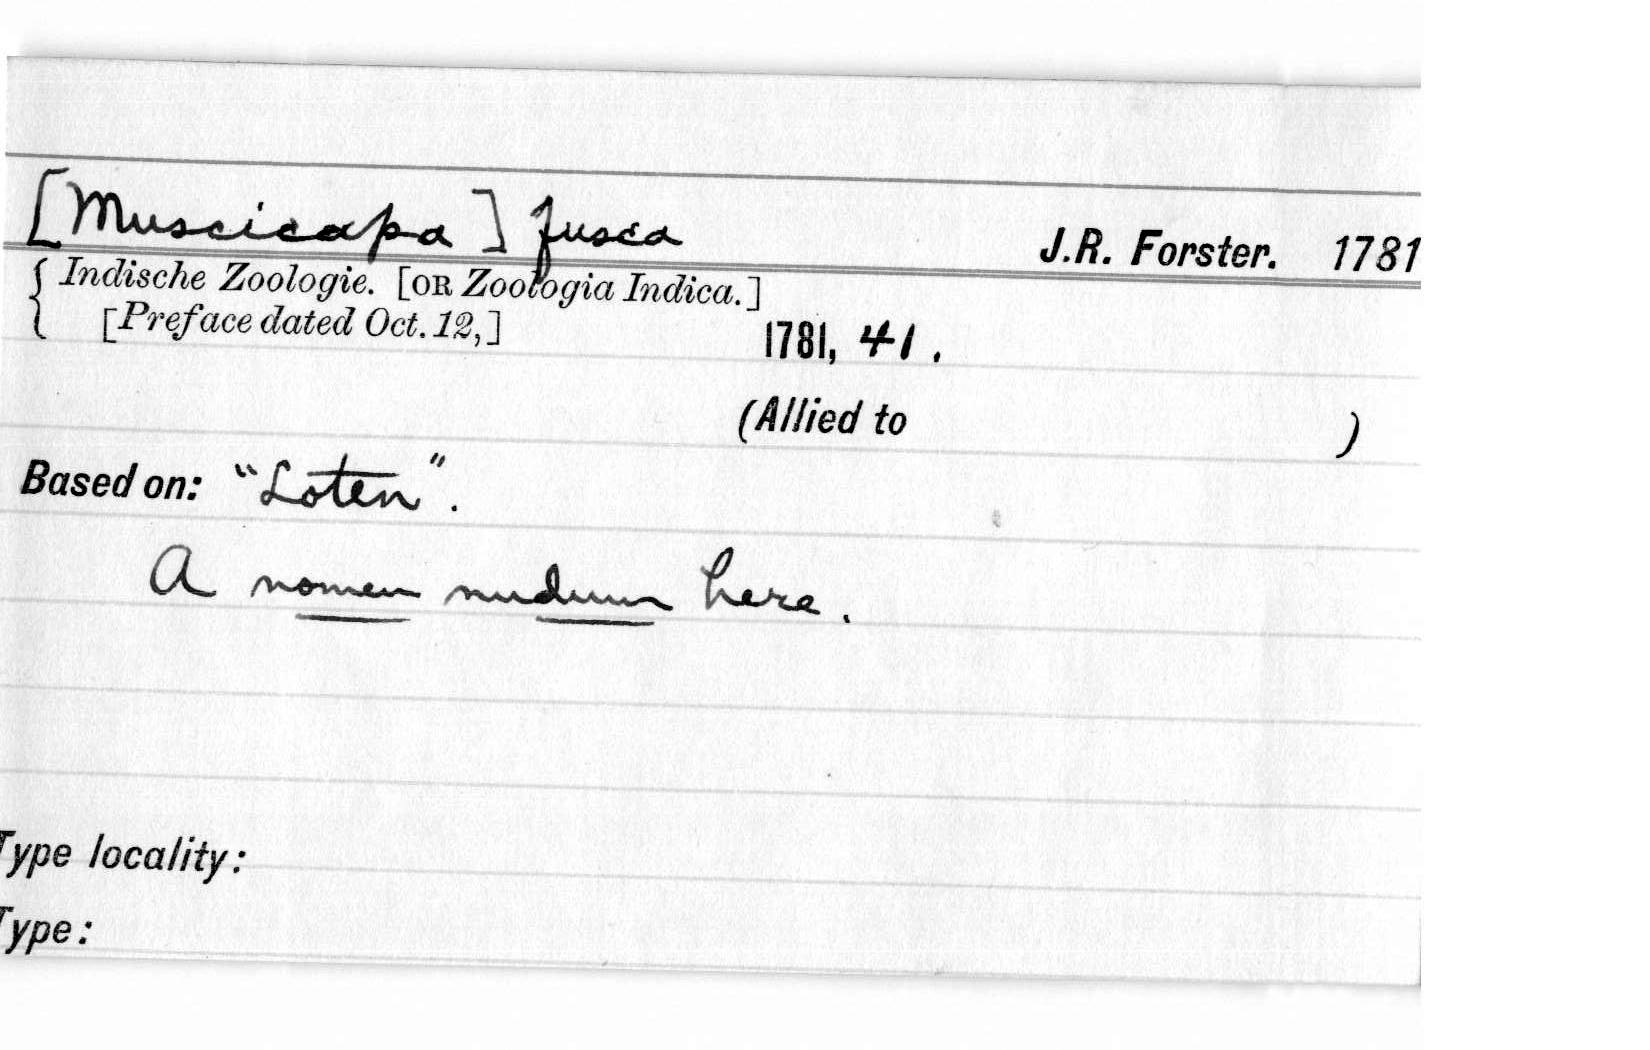 [Muscicapa] fusca J.R. Forster. 1781
{ Indische Zoologie. [OR Zoologia Indica.]
[Preface dated Oct. 12,]
1781, 41.
(Allied to )
Based on: "Loten".
A nomen nudum here.
Type locality:
Type: